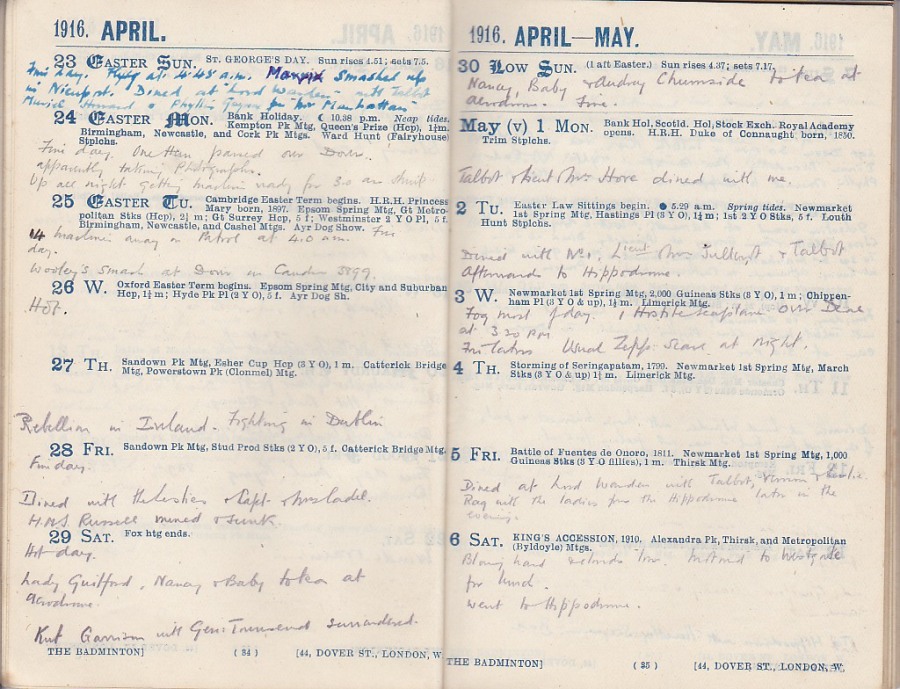 1916. APRIL.
23 EASTER SUN. ST. GEORGE'S DAY. Sun rises 4.51; sets 7.5.
Fine day. at 4.45 a.m. Smashed up
in Nieuport. Dined at Lord Warden with Talbot
Muriel & Phyllis for
24 EASTER MON. Bank Holiday. ☾ 10.38 p.m. Neap tides.
Kempton Pk Mtg, Queen's Prize (Hcp), 1¼m.
Birmingham, Newcastle, and Cork Pk Mtgs. Ward Hunt (Fairyhouse)
Stplchs.
Fine day. One Hun passed over Dover.
apparently taking Photographs.
Up all night getting machines ready for 3.0 am
25 EASTER TU. Cambridge Easter Term begins. H.R.H. Princess
Mary born, 1897. Epsom Spring Mtg, Gt Metro-
politan Stks (Hcp), 2¼ m; Gt Surrey Hcp, 5 f; Westminster 2 Y O Pl, 5 f.
Birmingham, Newcastle, and Cashel Mtgs. Ayr Dog Show. Fine
14 machines away on Patrol at 4.0 am.
day.
Wooley's Smash at Dover in Caudron 3899.
26 W. Oxford Easter Term begins. Epsom Spring Mtg, City and Suburban
Hcp, 1¼ m; Hyde Pk Pl (2 Y O), 5 f. Ayr Dog Sh.
Hot.
27 TH. Sandown Pk Mtg, Esher Cup Hcp (3 Y O), 1 m. Catterick Bridge
Mtg, Powerstown Pk (Clonmel) Mtg.
Rebellion in Ireland. Fighting in Dublin
28 FRI. Sandown Pk Mtg, Stud Prod Stks (2 Y O), 5 f. Catterick Bridge Mtg.
Fine day.
Dined with the Leslies & Capt & Mrs Cadel.
H.M.S Russell mined & sunk.
29 SAT. Fox htg ends.
Hot day.
Lady Guilford, Nancy & Baby to tea at
aerodrome.
Kut Garrison with Gen: Townsend surrendered.
THE BADMINTON] ( 34 ) [44, DOVER ST., LONDON, W.
1916. APRIL—MAY.
30 LOW SUN. (1 aft Easter.) Sun rises 4.37; sets 7.17.
Nancy, Baby & Audrey Chirnside to tea at
aerodrome. Fine.
May (v) 1 MON. Bank Hol, Scotld. Hol, Stock Exch. Royal Academy
opens. H.R.H. Duke of Connaught born, 1850.
Trim Stplchs.
Talbot & Lieut & Mrs Hore dined with me.
2 TU. Easter Law Sittings begin. ● 5.29 a.m. Spring tides. Newmarket
1st Spring Mtg, Hastings Pl (3 Y O), 1¼ m; 1st 2 Y O Stks, 5 f. Louth
Hunt Stplchs.
Dined with Lieut & Mrs & Talbot
afterwards to Hippodrome.
3 W. Newmarket 1st Spring Mtg, 2,000 Guineas Stks (3 Y O), 1 m; Chippen-
ham Pl (3 Y O & up), 1½ m. Limerick Mtg.
Fog most of day. 1 Hostile seaplane over Deal
at 3 30 pm
Usual Zepp: scare at night.
4 TH. Storming of Seringapatam, 1799. Newmarket 1st Spring Mtg, March
Stks (3 Y O & up) 1¼ m. Limerick Mtg.
5 FRI. Battle of Fuentes de Onoro, 1811. Newmarket 1st Spring Mtg, 1,000
Guineas Stks (3 Y O fillies), 1 m. Thirsk Mtg.
Dined at Lord Warden with Talbot, Vernon & Leslie.
Rag with the ladies from the Hippodrome later in the
evening.
6 SAT. KING'S ACCESSION, 1910. Alexandra Pk, Thirsk, and Metropolitan
(Byldoyle) Mtgs.
Blowing hard & clouds low. Motored to Westgate
for lunch.
Went to Hippodrome.
THE BADMINTON] ( 35 ) [44, DOVER ST., LONDON, W.